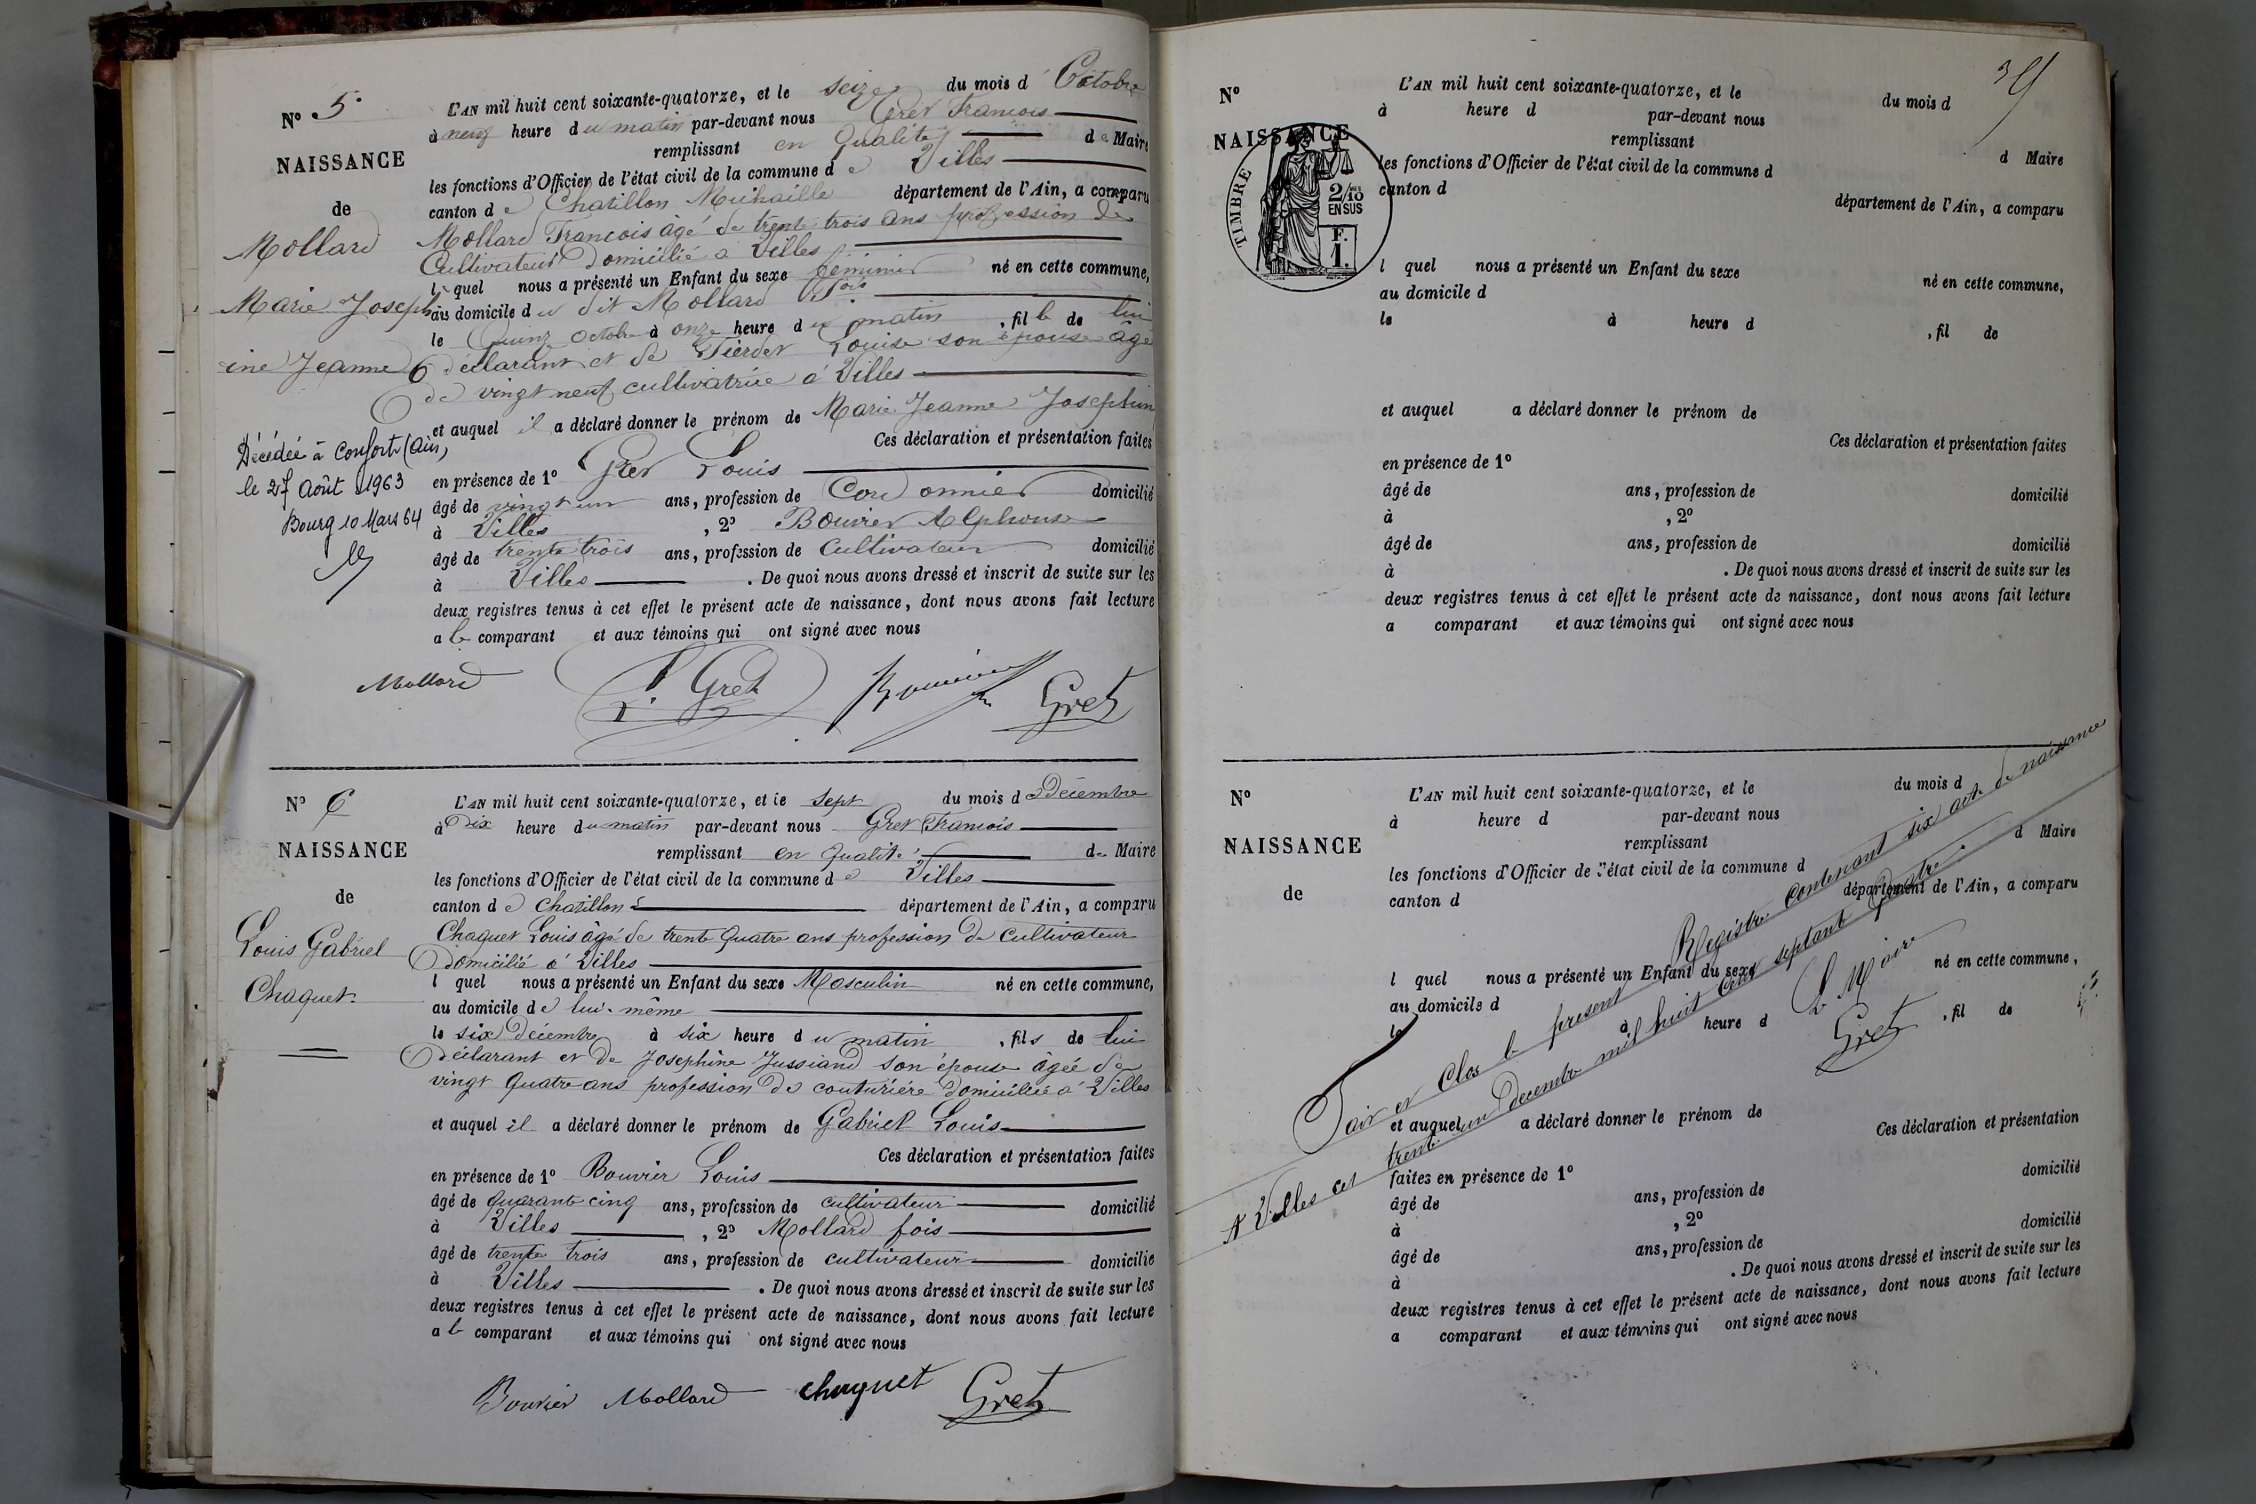 N° 5.
NAISSANCE
de
Mollard
Marie Joseph
ine Jeanne
Décédée à Confort (Ain)
le 27 Août 1963
Bourg 10 Mars 64
L'AN mil huit cent soixante-quatorze, et le seize du mois d'Octobre
à neuf heure du matin par-devant nous Gret François
remplissant en qualité de Maire
les fonctions d'Officier de l'état civil de la commune de Villes
canton de Chatillon Michaille département de l'Ain, a comparu
Mollard François âgé de trente trois ans profession de
Cultivateur domicilié à Villes
lequel nous a présenté un Enfant du sexe féminin né en cette commune,
au domicile du dit Mollard fois
le Quinz Octobre à onze heure du matin, fille de lui
déclarant et de Tierdet Louise son épouse âgé
de vingt neuf cultivatrice à Villes
et auquel il a déclaré donner le prénom de Marie Jeanne Josephin
Ces déclaration et présentation faites
en présence de 1° Gret Louis
âgé de vingt un ans, profession de Cordonnier domicilié
à Villes, 2° Bouvier Alphonse
âgé de trente trois ans, profession de Cultivateur domicilié
à Villes. De quoi nous avons dressé et inscrit de suite sur les
deux registres tenus à cet effet le présent acte de naissance, dont nous avons fait lecture
a le comparant et aux témoins qui ont signé avec nous
Mollard L. Gret Bouvier Gret
N° 6
NAISSANCE
de
Louis Gabriel
Chaquet
L'AN mil huit cent soixante-quatorze, et le sept du mois de Décembre
à Dix heure du matin par-devant nous Gret François
remplissant en qualité de Maire
les fonctions d'Officier de l'état civil de la commune de Villes
canton de Chatillon département de l'Ain, a comparu
Chaquet Louis âgé de trente quatre ans profession de cultivateur
domicilié à Villes
l quel nous a présenté un Enfant du sexe Masculin né en cette commune,
au domicile de lui-même
le six Décembre à six heure du matin, fils de lui
déclarant et de Josephine Jussiand son épouse âgée de
vingt quatre ans profession de couturière domiciliée à Villes
et auquel il a déclaré donner le prénom de Gabriel Louis
Ces déclaration et présentation faites
en présence de 1° Bouvier Louis
âgé de quarante cinq ans, profession de cultivateur domicilié
à Villes, 2° Mollard fois
âgé de trente trois ans, profession de cultivateur domicilié
à Villes. De quoi nous avons dressé et inscrit de suite sur les
deux registres tenus à cet effet le présent acte de naissance, dont nous avons fait lecture
a le comparant et aux témoins qui ont signé avec nous
Bouvier Mollard Chaquet Gret
39
N°
NAISSANCE
TIMBRE
2/10 EN SUS
F. 1.
L'AN mil huit cent soixante-quatorze, et le du mois d
à heure d par-devant nous
remplissant d Maire
les fonctions d'Officier de l'état civil de la commune d
canton d département de l'Ain, a comparu
l quel nous a présenté un Enfant du sexe né en cette commune,
au domicile d
le à heure d, fil de
et auquel a déclaré donner le prénom de
Ces déclaration et présentation faites
en présence de 1°
âgé de ans, profession de domicilié
à, 2°
âgé de ans, profession de domicilié
à. De quoi nous avons dressé et inscrit de suite sur les
deux registres tenus à cet effet le présent acte de naissance, dont nous avons fait lecture
a comparant et aux témoins qui ont signé avec nous
N°
NAISSANCE
de
L'AN mil huit cent soixante-quatorze, et le du mois d
à heure d par-devant nous
remplissant d Maire
les fonctions d'Officier de l'état civil de la commune d
canton d département de l'Ain, a comparu
l quel nous a présenté un Enfant du sexe né en cette commune,
au domicile d
le à heure d, fil de
et auquel a déclaré donner le prénom de
Ces déclaration et présentation
faites en présence de 1° domicilié
âgé de ans, profession de
à, 2° domicilié
âgé de ans, profession de
à. De quoi nous avons dressé et inscrit de suite sur les
deux registres tenus à cet effet le présent acte de naissance, dont nous avons fait lecture
a comparant et aux témoins qui ont signé avec nous
Fait et Clos le présent Registre contenant six acte de naissance
A Villes cet trente un Décembre mil huit cent septante quatre.
Le Maire
Gret